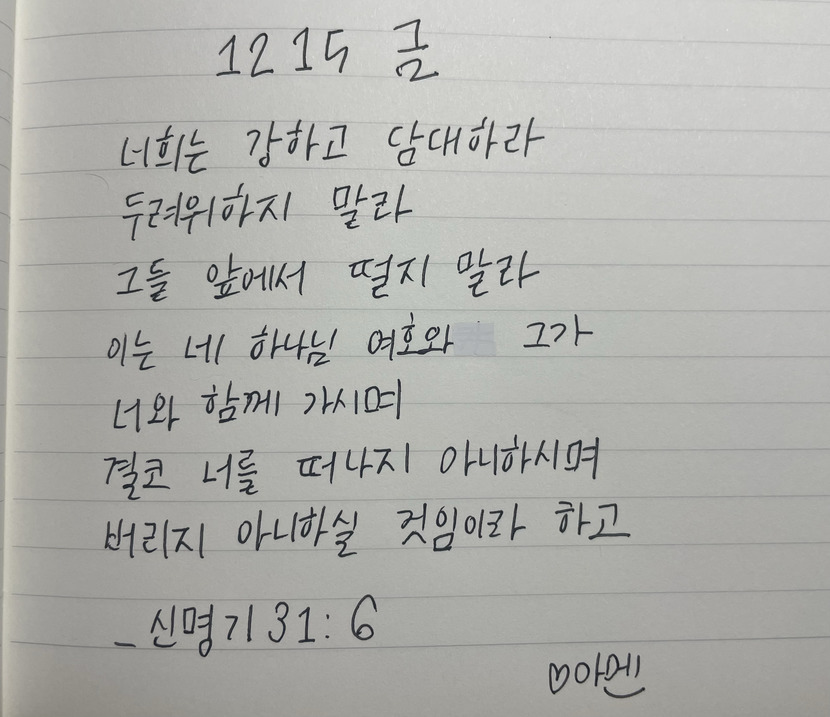 1215 금
너희는 강하고 담대하라
두려워하지 말라
그들 앞에서 떨지 말라
이는 네 하나님 여호와 그가
너와 함께 가시며
결코 너를 떠나지 아니하시며
버리지 아니하실 것임이라 하고
_신명기31:6
♡아멘